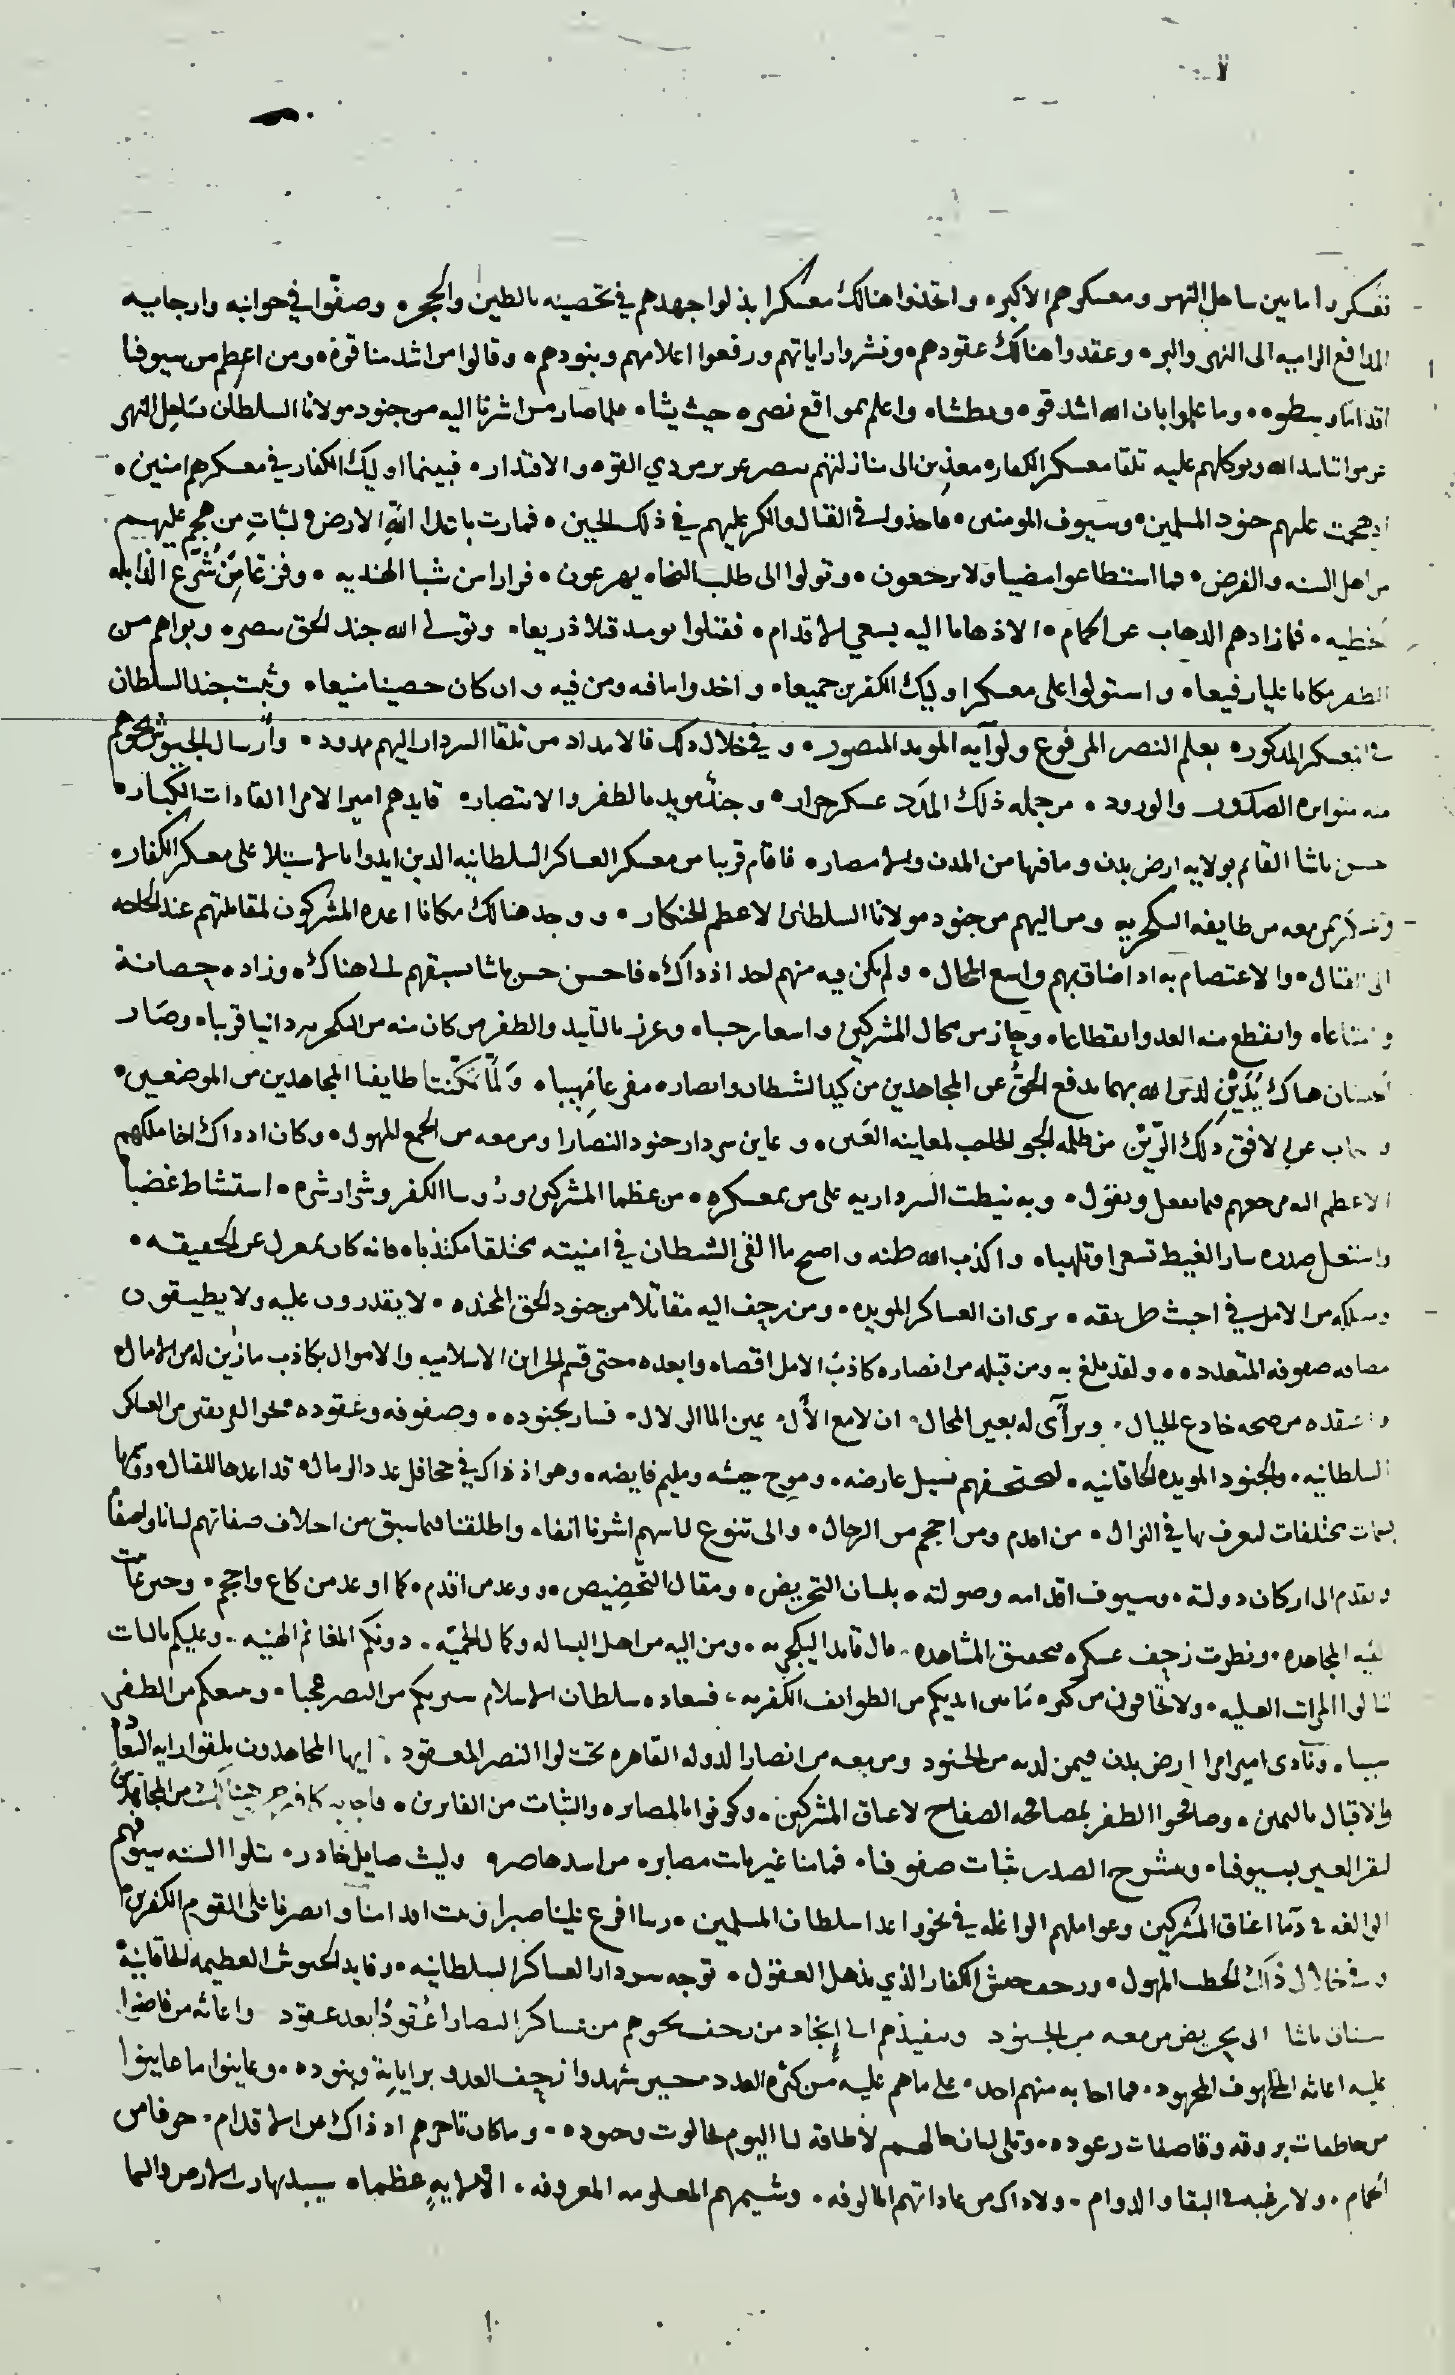 فعسكروا ما بين ساحل النهر ومعسكرهم الاكبر ٥ واتخذوا هنالك معسكرا بذلوا جهدهم في تحصينه بالطين والحجر ٥ وصفّوا في جوانبه وارجايه
المدافع الراميه الى النهر والبر ٥ وعقدوا هنالك عقودهم ٥ ونشروا راياتهم ورفعوا اعلامهم وبنودهم ٥ وقالوا من اشد منا قوة ٥ ومن اعظم من سيوفنا
اقداما وسطوه ٥ وما علموا بان الله اشد قوه وبطشا ٥ واعلم بمواقع نصره حيث يشا ٥ فلما صار من اشرنا اليه من جنود مولانا السلطان بساحل النهر
عزموا بتاييد الله وتوكلهم عليه تلقا معسكر الكفار ٥ معذين الى منازلتهم بنصر عزيز من ذي القوه والاقتدار ٥ فبينما اوليك الكفار في معسكرهم امنين ٥
اذ هجمت عليهم جنود المسلمين ٥ وسيوف المومنين ٥ فاخذوا في القتال والكر عليهم في ذلك الحين ٥ فمارت باعدا الله الارض ٥ لثبات من هجم عليهم
من اهل السنه والفرض ٥ فما استطاعوا مضيا ولا يرجعون ٥ وتولوا الى طلب النجاه يهرعون ٥ فرارا من شبا الهنديه ٥ وفزعا من شرع الذابله
الخطيه ٥ فما زادهم الذهاب عن الحمام ٥ الا ذهابا اليه بسعي الاقدام ٥ فقتلوا يوميذ قتلا ذريعا ٥ وتولى الله جند الحق بنصره وبواهم من
الظفر مكانا عليا رفيعا ٥ واستولوا على معسكر اوليك الكفره جميعا ٥ واخذوا ما فيه ومن فيه وان كان حصينا منيعا ٥ وثبت جند السلطان
في المعسكر المذكور ٥ بعلم النصر المرفوع ولوآيه المويد المنصور ٥ وفي خلال ذلك فالامداد من تلقا السردار اليهم ممدود ٥ وارسال الجيوش نحوهم
منه متواتره الصدور والورود ٥ من جمله ذلك المدد عسكر جرار ٥ وجند مويد بالظفر والانتصار ٥ قايدهم امير الامرا القادات الكبار ٥
حسن باشا القايم بولايه ارض بدن وما فيها من المدن والامصار ٥ فاقام قريبا من معسكر العساكر السلطانيه الذين ايدوا بالاستيلا على معسكر الكفار ٥
معه من طايفه الينكجريه ومن اليهم من جنود مولانا السلطان الاعظم الخنكار ٥ ووجد هنالك مكانا اعده المشركون لمقاتلتهم عند الحاجه
الى القتال ٥ والاعتصام به اذا ضاق بهم واسع المجال ٥ ولم يكن فيه منهم احد اذ ذاك ٥ فاحسن حسن باشا بسبقهم الى هناك ٥ وزاده حصانة
وامتناعا ٥ وانقطع منه العدو انقطاعا ٥ وحاز من مجال المشركين واسعا رحبا ٥ وعزز بالتاييد والظفر من كان منه من الينكجريه دانيا قريبا ٥ وصار
الحسنان هناك يدفع الحق عن المجاهدين من كيد الشيطان وانصاره مفزعا مهيبا ٥ ولما تمكنتا طايفتا المجاهدين من الموضعين ٥
عن الافق ذلك من ظلمه الجو لمعاينه العين ٥ وعاين سردار جنود النصارا ومن معه من الجمع المهول ٥ وكان اذ ذاك اخا ملكهم
الاعظم اليه مرجعهم فيما يفعل ويقول ٥ وبه نيطت السرداريه على من بمعسكره ٥ من عظما المشركين ورُوسا الكفر وشرار شره ٥ استشاط غضبا
واشتعل صدره بنار الغيظ تسعرا وتلهبا ٥ واكذب الله ظنه واصبح ما القى الشيطان في امنيته مختلقا مكذبا ٥ فانه كان بمعزل عن الحقيقه ٥
ومسلكه من الامل في اخبث طريقه ٥ يرى ان العساكر المويده ٥ ومن زحف اليه مقاتلا من جنود الحق المنجده ٥ لا يقدرون عليه ولا يطيقون
مصافه صفوفه المتعدده ٥ ولقد بلغ به ومن قبله من انصاره كاذب الامل اقصاه وابعده حتى قسم الخزاين الاسلاميه والاموال بكاذب ما زين له من الامال ٥
من صحه خادع الخيال ٥ وتراآى له بعين المحال ٥ ان لامع الآل ٥ عين الما الزلال ٥ فسار بجنوده ٥ وصفوفه وعقوده ٥ نحو الفريقين من العساكر
السلطانيه ٥ والجنود المويده الخاقانيه ٥ بسيل عارضه ٥ وموج جيشه ومليم فايضه ٥ وهو اذ ذاك في جحافل عدد الرمال ٥ قد اعدها للقتال
بسمات مختلفات لتعرف بها في النزال ٥ من اقدم ومن احجم من الرجال ٥ والى تنوع لباسهم اشرنا انفا ٥ واطلقنا فيما سبق من اختلاف صفاتهم لسانا واصفا
وتقدم الى اركان دولته ٥ وسيوف اقدامه وصولته ٥ بلسان التحريض ٥ ومقال التحضيض ٥ ووعد من اقدم ٥ كما اوعد من كاع واحجم ٥ وحين عاينت
الفيه المجاهده ٥ ونظرت زحف عسكره بتحقيق المشاهده ٥ قال قايد الينكجريه ٥ ومن اليه من اهل البساله وكمال الحميّه ٥ دونكم المغانم الهنيه ٥ وعليكم بالثبات
تنالوا المراتب العليه ٥ ولا تخافون من كثره ما بين ايديكم من الطوايف الكفريه ٥ فسعاده سلطان الاسلام ستريكم من النصر عجبا ٥ من الظفر
سببا ٥ ونادى امير امرا ارض بدن فيمن لديه من الجنود ومن معه من انصار الدوله القاهره تحت لوا النصر المعقود ٥ ايها المجاهدون تلقوا رايه
والاقبال باليمين ٥ وصافحوا الظفر بمصافحه الصفاح لاعناق المشركين ٥ وكونوا بالمصابره والثبات من الفايزين ٥ فاجابه من المجاهدين
لتقر العين بسيوفنا ٥ وينشرح الصدر بثبات صفوفنا ٥ فما منا غير ثابت مصابر ٥ من اسد هاصر ٥ وليث صايل خادر ٥ تتلوا السنه سيوفهم
الوالغه في دما اعناق المشركين وعواملهم الواغله في نحور اعدا سلطان المسلمين ٥ ربنا افرغ علينا صبرا وثبت اقدامنا وانصرنا على القوم الكفرين ٥
وفي خلال ذلك الخطب المهول ٥ وزحف جيش الكفار الذي يذهل العقول ٥ توجه سردار العساكر السلطانيه ٥ وقايد الجيوش العظيمه الخاقانية
سنان باشا الى تحريض من معه من الجنود وتنفيذهم الى انجاد من زحف نحوهم من عساكر النصارا عقودا بعد عقود واغاثه من
عليه اغاثه الملهوف المجهود ٥ فما اجابه منهم احد ٥ على ما هم عليه من كثره العدد حين شهدوا زحف العدو براياته وبنوده ٥ وعاينوا ما عاينوا
من خاطفات بروقه وقاصفات رعوده ٥ وتلى لسان حالهم لا طاقه لنا اليوم بجالوت وجنوده ٥ وما كان تاخرهم اذ ذاك عن الاقدام ٥ خوفا من
الحمام ٥ ولا رغبه في البقا والدوام ٥ ولا ذاك من عاداتهم المالوفه ٥ وشيمهم المعلومه المعروفه ٥ الارض والسما